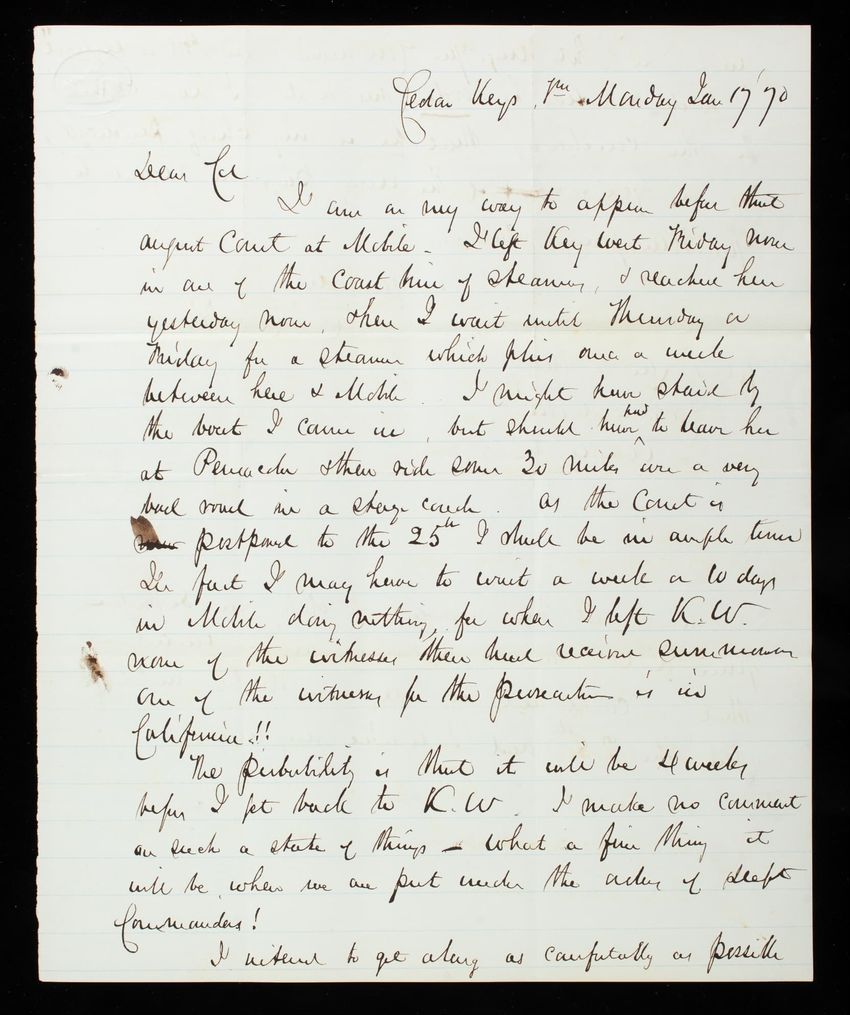 Cedar Keys, Fla. Monday Jan 17 '70
Dear Col
I am on my way to appear before that
august Court at Mobile - I left Key West Friday noon
in one of the Coast line of steamers, & reached here
yesterday noon, & here I wait until Thursday or
Friday for a steamer which plies once a week
between here & Mobile. I might have staid by
the boat I came in, but should have had to leave her
at Pensacola & then ride some 30 miles over a very
bad road in a stage coach. As the Court is
postponed to the 25th I shall be in ample time
In fact I may have to wait a week or 10 days
in Mobile doing nothing, for when I left K.W.
none of the witnesses there had received summons
one of the witnesses for the prosecution is in
California!!
The probability is that it will be 4 weeks
before I get back to K.W. I make no comment
on such a state of things - what a fine thing it
will be when we are put under the orders of Dept
Commanders!
I intend to get along as comfortably as possible